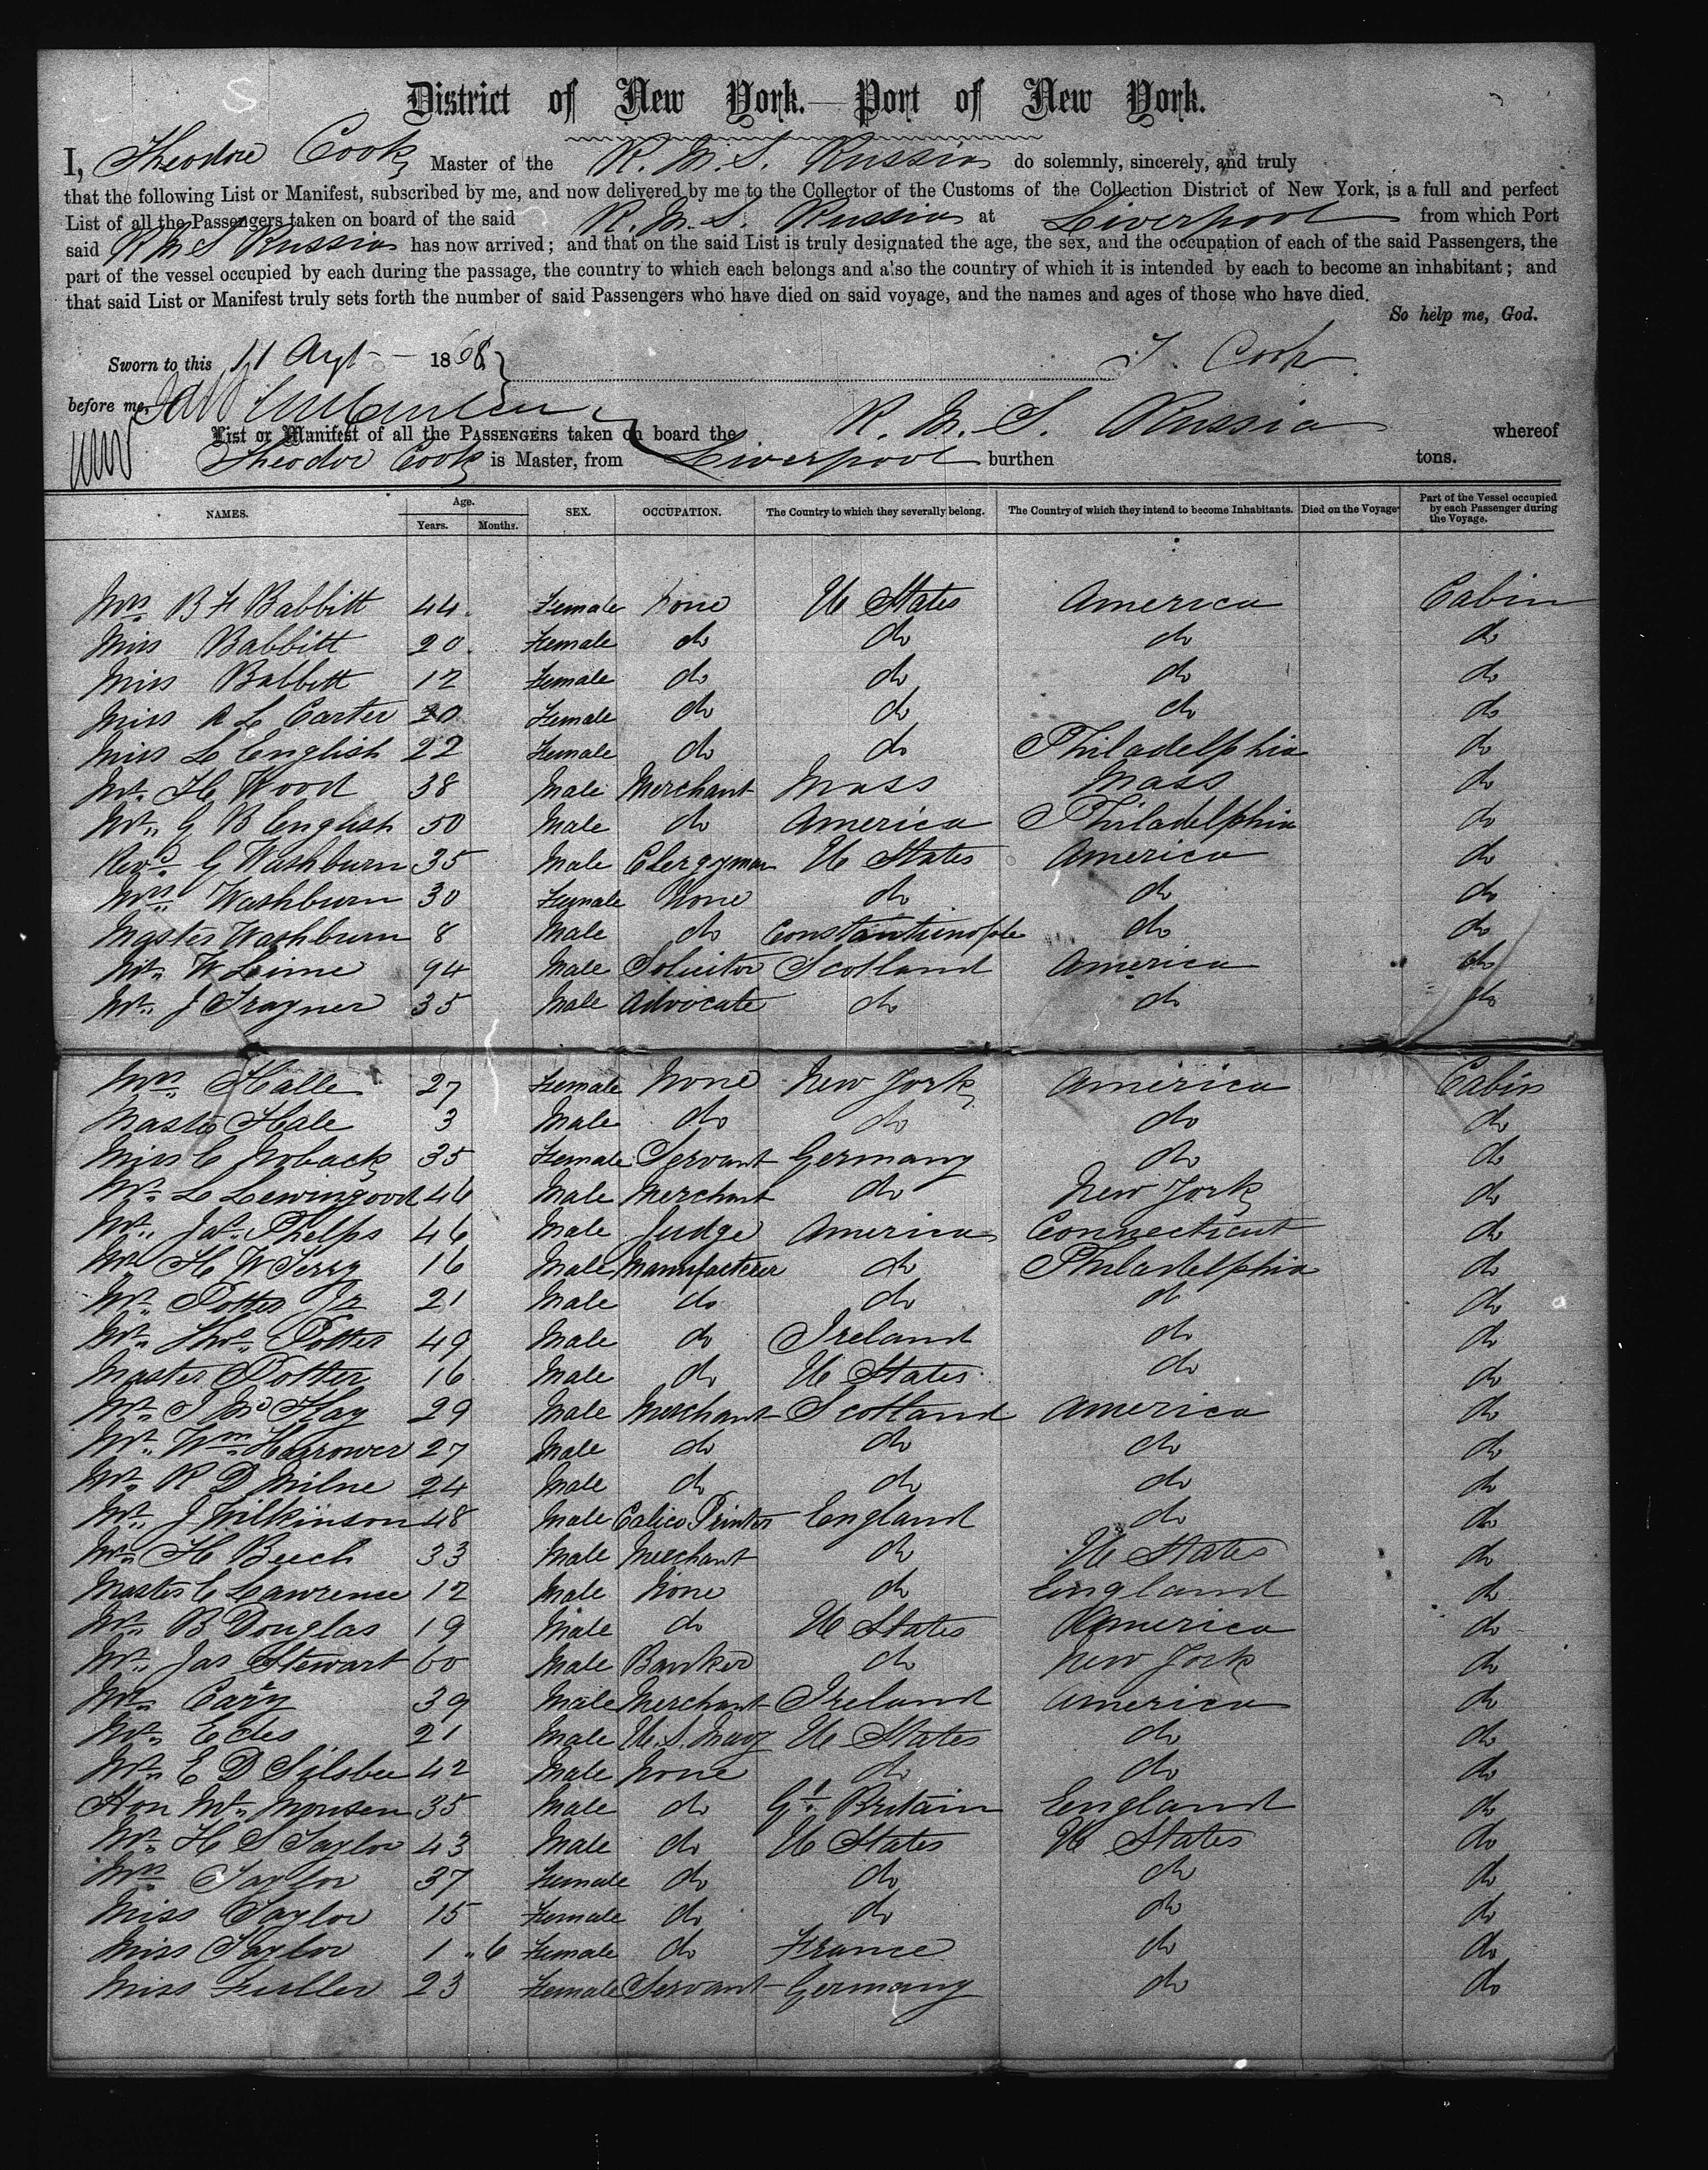 District of New York.—Port of New York.
I, Theodore Cook Master of the R. M. S. Russia do solemnly, sincerely, and truly
that the following List or Manifest, subscribed by me, and now delivered by me to the Collector of the Customs of the Collection District of New York, is a full and perfect
List of all the Passengers taken on board of the said R. M. S. Russia at Liverpool from which Port
said R M S Russia has now arrived; and that on the said List is truly designated the age, the sex, and the occupation of each of the said Passengers, the
part of the vessel occupied by each during the passage, the country to which each belongs and also the country of which it is intended by each to become an inhabitant; and
that said List or Manifest truly sets forth the number of said Passengers who have died on said voyage, and the names and ages of those who have died.
So help me, God.
Sworn to this 11 Augt 1868 T. Cook
before me,
List or Manifest of all the PASSENGERS taken on board the R. M. S. Russia whereof
Theodor Cook is Master, from Liverpool burthen tons.
NAMES. Age. Years. Months. SEX. OCCUPATION. The Country to which they severally belong. The Country of which they intend to become Inhabitants. Died on the Voyage Part of the Vessel occupied by each Passenger during the Voyage.
Mrs. B F Babbitt 44. Female None U States America Cabin
Miss Babbitt 20. Female do do do do
Miss Babbitt 12 Female do do do do
Miss A L Carter 20 Female do do do do
Miss L English 22 Female do do Philadelphia do
Mr. H Wood 38 Male Merchant Mass Mass do
Mr. G B English 50 Male do America Philadelphia do
Revd. G Washburn 35 Male Clergyman U States America do
Mrs. Washburn 30 Female None do do do
Master Washburn 8 Male do Constantinople do do
Mr. W Leime 94 Male Solicitor Scotland America do
Mr. J Trayner 35 Male Advocate do do do
Mrs. Halle 27 Female None New York America Cabin
Master Hale 3 Male do do do do
Miss C Noback 35 Female Servant Germany do do
Mr. L Lewingood 46 Male Merchant do New York do
Mr. Jas. Phelps 46 Male Judge America Connecticut do
Mr. H W Terry 16 Male Manufacterer do Philadelphia do
Mr. Potter Jr 21 Male do do d do
Mr. Thos. Potter 49 Male do Ireland do do
Master Potter 16 Male do U States do do
Mr. J McHay 29 Male Merchant Scotland America do
Mr. Wm. Harrower 27 Male do do do do
Mr. R D Milne 24 Male do do do do
Mr. J Wilkinson 48 Male Calico Printer England do do
Mr. H Beech 33 Male Merchant do U States do
Master C Lawrence 12 Male None do England do
Mr. B Douglas 19 Male do U States America do
Mr. Jas Stewart 60 Male Banker do New York do
Mr. Cary 39 Male Merchant Ireland America do
Mr. Ecles 21 Male U. S. Navy U States do do
Mr. E D Silsbee 42 Male None do do do
Hon Mr. Monsen 35 Male do Gt. Britain England do
Mr. H S Taylor 43 Male do U States U States do
Mrs. Taylor 37 Female do do do do
Miss Taylor 15 Female do do do do
Miss Taylor 1 " 6 Female do France do do
Miss Fuller 23 Female Servant Germany do do